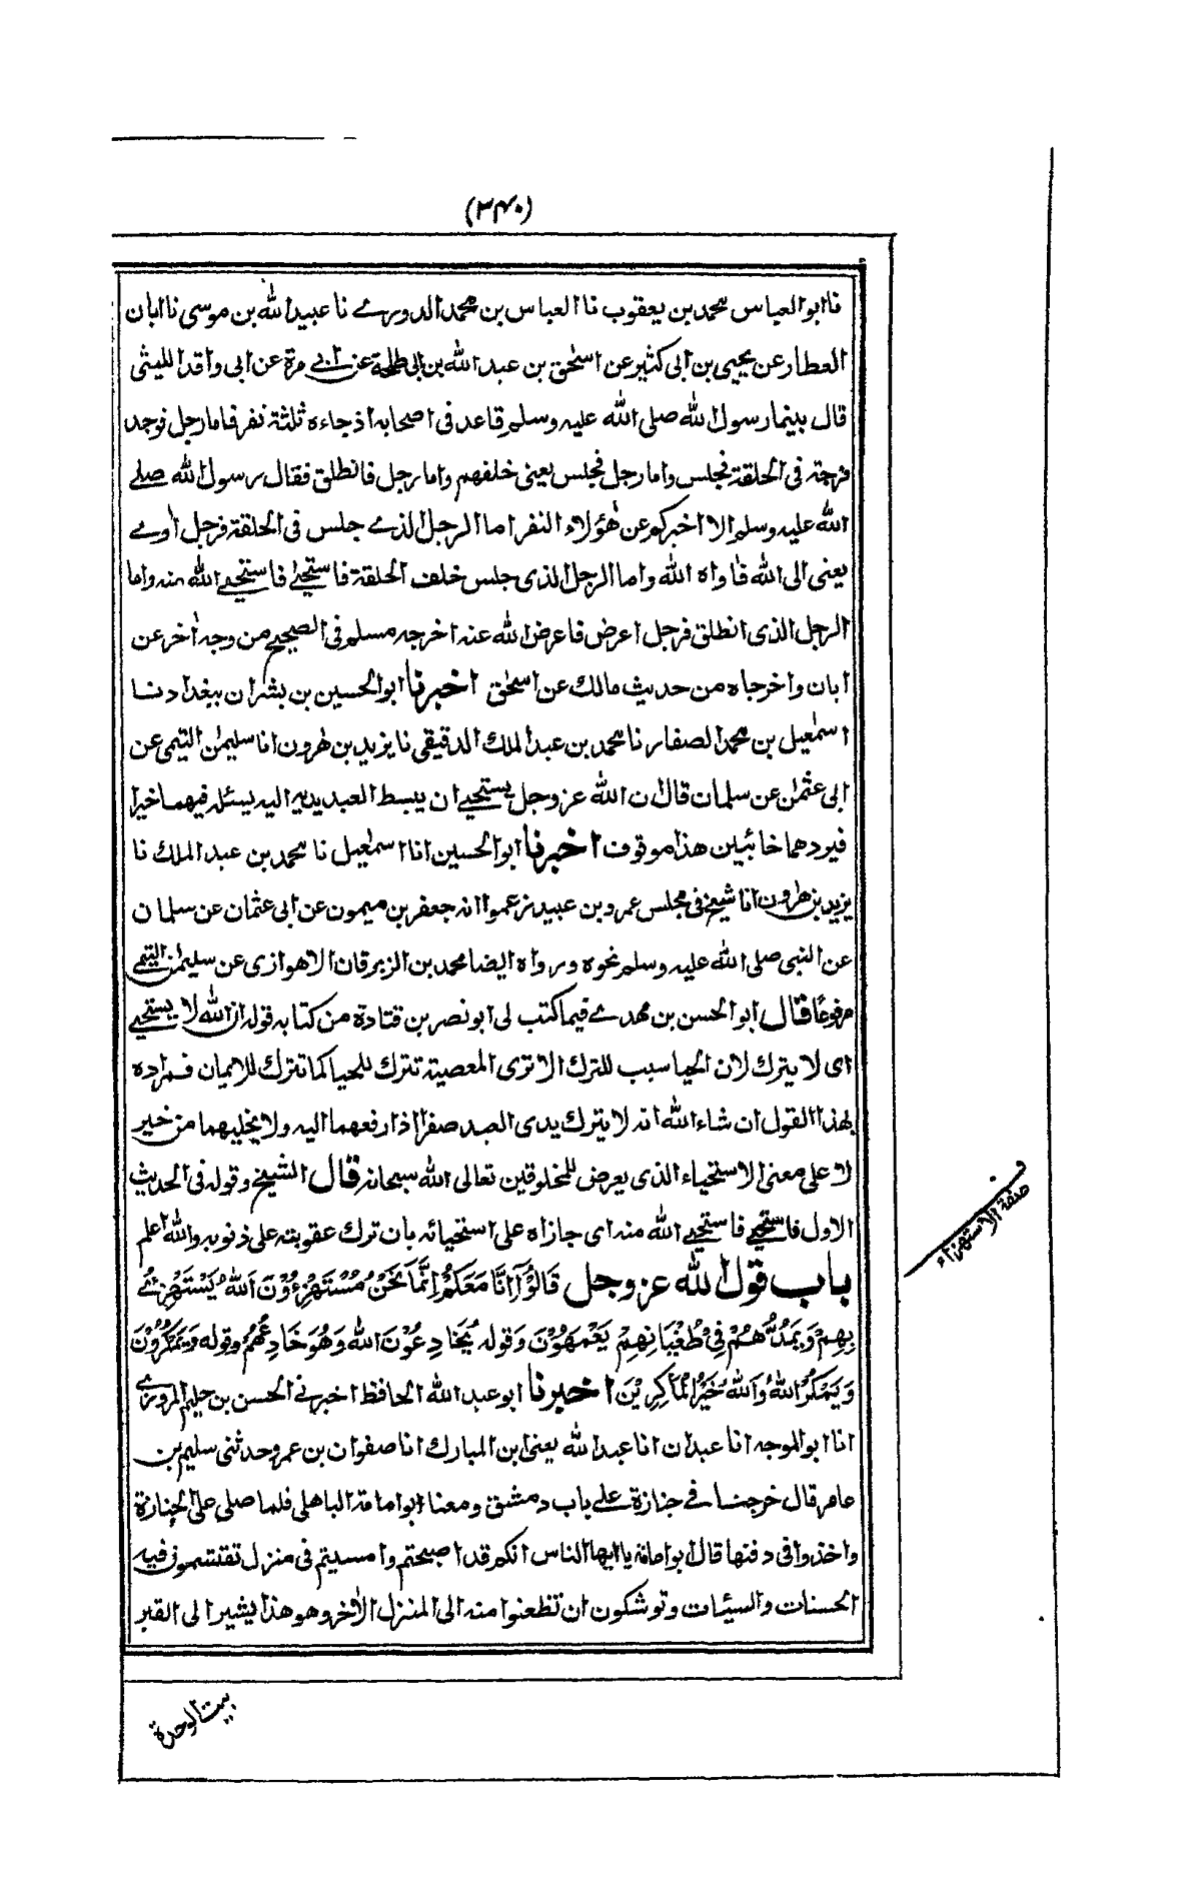 (٣٤٠)
نا ابو العباس محمد بن يعقوب نا العباس بن محمد الدورے نا عبيد الله بن موسى نا ابان
العطار عن يحيى بن ابى كثير عن اسحٰق بن عبد الله بن ابى طلحة عن ابے مرة عن ابى واقد الليثى
قال بينما رسول الله صلى الله عليه وسلم قاعد فى اصحابه اذ جاءه ثلثة نفر فاما رجل فوجد
فرجة فى الحلقة فجلس واما رجل فجلس يعنى خلفهم واما رجل فانطلق فقال رسول الله صلے
الله عليه وسلم الا اخبركم عن هٰؤلاء النفر اما الرجل الذے جلس فى الحلقة فرجل اوے
يعنى الى الله فاٰواه الله واما الرجل الذى جلس خلف الحلقة فاستحيے فاستحيے الله منه واما
الرجل الذى انطلق فرجل اعرض فاعرض الله عنه اخرجه مسلم فى الصحيح من وجه اٰخر عن
ابان واخرجاه من حديث مالك عن اسحٰق اخبرنا ابو الحسين بن بشران ببغداد نا
اسمٰعيل بن محمد الصفار نا محمد بن عبد الملك الدقيقى نا يزيد بن هٰرون انا سليمٰن التيمى عن
ابى عثمٰن عن سلمان قال ان الله عز وجل يستحيے ان يبسط العبد يديه اليه يسئله فيهما خيرا
فيردهما خائبين هذا موقوف اخبرنا ابو الحسين انا اسمٰعيل نا محمد بن عبد الملك نا
يزيد بن هٰرون انا شيخ فى مجلس عمرو بن عبيد زعموا انه جعفر بن ميمون عن ابى عثمان عن سلمان
عن النبى صلى الله عليه وسلم نحوه ورواه ايضا محمد بن الزبرقان الاهوازى عن سليمٰن التيمے
مرفوعًا قال ابو الحسن بن مهدے فيما كتب لى ابو نصر بن قتادة من كتابه قوله ان الله لا يستحيے
اى لا يترك لان الحيا سبب للترك الا ترى المعصية تترك للحيا كما تترك للايمان فمراده
بهذا القول ان شاء الله انه لا يترك يدى العبد صفرا اذا رفعهما اليه ولا يخليهما من خير
لا على معنى الاستحياء الذى يعرض للمخلوقين تعالى الله سبحانه قال الشيخ وقوله فى الحديث
الاول فاستحيے فاستحيے الله منه اى جازاه على استحيائه بان ترك عقوبته على ذنوبه والله اعلم
باب قول الله عز وجل قَالُوْآ اِنَّا مَعَكُمْ اِنَّمَا نَحْنُ مُسْتَهْزِءُوْنَ اَللهُ يَسْتَهْزِئُ
بِهِمْ وَيَمُدُّهُمْ فِيْ طُغْيَانِهِمْ يَعْمَهُوْنَ وقوله يُخَادِعُوْنَ اللهَ وَهُوَ خَادِعُهُمْ وقوله وَيَمْكُرُوْنَ
وَيَمْكُرُ اللهُ وَاللهُ خَيْرُ الْمَاكِرِيْنَ اخبرنا ابو عبد الله الحافظ اخبرنے الحسن بن حليم المروزے
انا ابو الموجه انا عبدان انا عبد الله يعنى ابن المبارك انا صفوان بن عمرو حدثنى سليم بن
عامر قال خرجنا فے جنازة علے باب دمشق ومعنا ابو امامة الباهلى فلما صلى على الجنازة
واخذوا فى دفنها قال ابو امامة يا ايها الناس انكم قد اصبحتم وامسيتم فى منزل تقتسمون فيه
الحسنات والسيئات وتوشكون ان تظعنوا منه الى المنزل الاٰخر وهو هذا يشير الى القبر
صفة الاستهزاء
بيت الوحدة